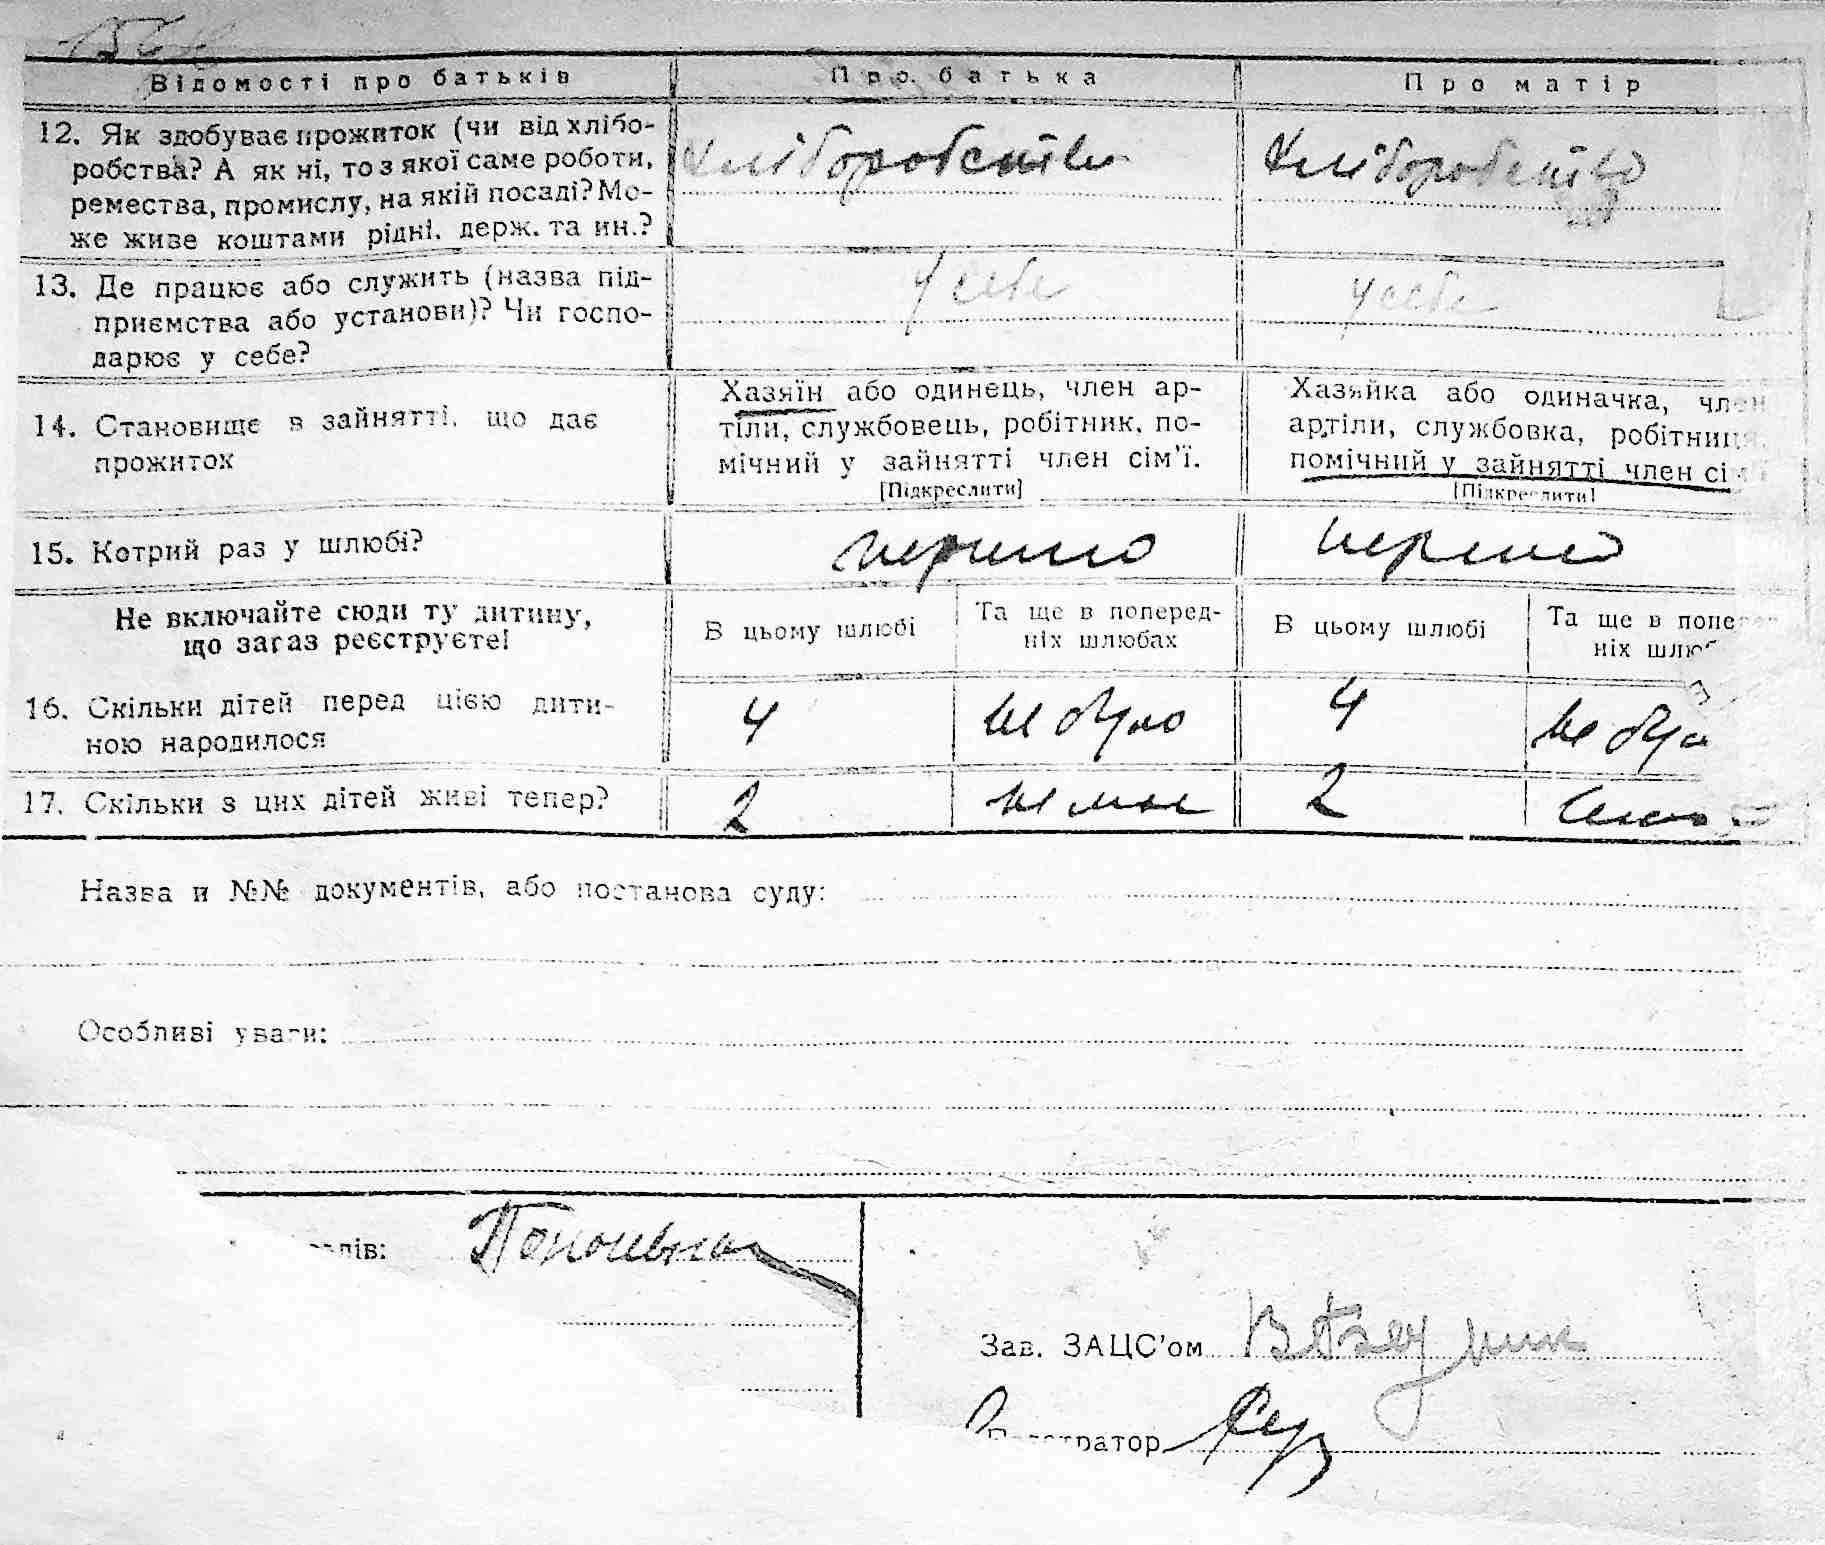 Відомості про батьків Про батька Про матір
12. Як здобуває прожиток (чи від хлібо-
робства? А як ні, то з якої саме роботи,
ремества, промислу, на якій посаді? Мо-
же живе коштами рідні, держ. та ин.?
Хліборобство Хліборобство
13. Де працює або служить (назва під-
приємства або установи)? Чи госпо-
дарює у себе?
у себе у себе
14. Становище в зайнятті, що дає
прожиток
Хазяїн або одинець, член ар-
тіли, службовець, робітник, по-
мічний у зайнятті член сім'ї.
[Підкреслити]
Хазяйка або одиначка, член
артіли, службовка, робітниця,
помічний у зайнятті член сім'ї
[Підкреслити]
15. Котрий раз у шлюбі? перший перший
Не включайте сюди ту дитину,
що зараз реєструєте!
В цьому шлюбі
Та ще в поперед-
ніх шлюбах
В цьому шлюбі
Та ще в попе
ніх шлюб
16. Скільки дітей перед цією дити-
ною народилося
4 не було 4 не було
17. Скільки з цих дітей живі тепер? 2 немає 2
Назва и №№ документів, або постанова суду:
Особливі уваги:
Зав. ЗАЦС'ом
Регістратор